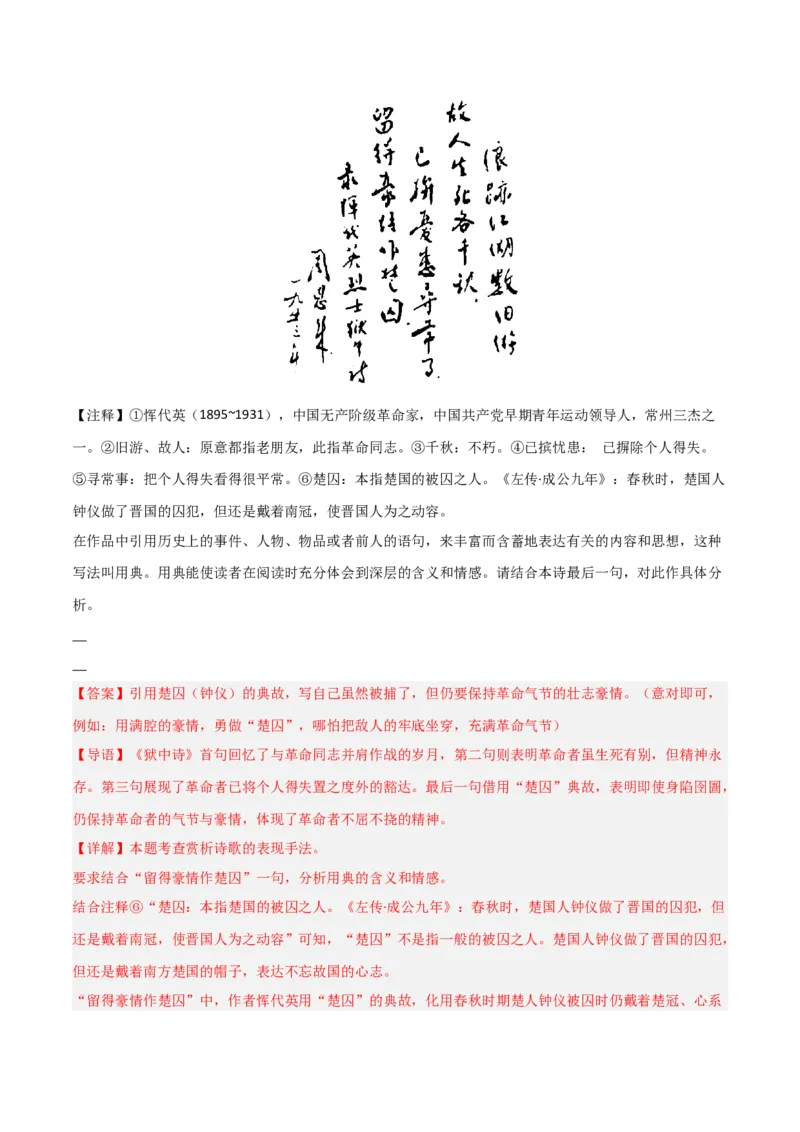 浪迹江湖数旧游
故人生死各千秋
已擯忧患寻常事
留得豪情作楚囚
录恽代英烈士狱中诗
周恩来
一九五三年
【注释】①恽代英（1895~1931），中国无产阶级革命家，中国共产党早期青年运动领导人，常州三杰之
一。②旧游、故人：原意都指老朋友，此指革命同志。③千秋：不朽。④已摈忧患： 已摒除个人得失。
⑤寻常事：把个人得失看得很平常。⑥楚囚：本指楚国的被囚之人。《左传·成公九年》：春秋时，楚国人
钟仪做了晋国的囚犯，但还是戴着南冠，使晋国人为之动容。
在作品中引用历史上的事件、人物、物品或者前人的语句，来丰富而含蓄地表达有关的内容和思想，这种
写法叫用典。用典能使读者在阅读时充分体会到深层的含义和情感。请结合本诗最后一句，对此作具体分
析。
【答案】引用楚囚（钟仪）的典故，写自己虽然被捕了，但仍要保持革命气节的壮志豪情。（意对即可，
例如：用满腔的豪情，勇做“楚囚”，哪怕把敌人的牢底坐穿，充满革命气节）
【导语】《狱中诗》首句回忆了与革命同志并肩作战的岁月，第二句则表明革命者虽生死有别，但精神永
存。第三句展现了革命者已将个人得失置之度外的豁达。最后一句借用“楚囚”典故，表明即使身陷囹圄，
仍保持革命者的气节与豪情，体现了革命者不屈不挠的精神。
【详解】本题考查赏析诗歌的表现手法。
要求结合“留得豪情作楚囚”一句，分析用典的含义和情感。
结合注释⑥“楚囚：本指楚国的被囚之人。《左传·成公九年》：春秋时，楚国人钟仪做了晋国的囚犯，但
还是戴着南冠，使晋国人为之动容”可知，“楚囚”不是指一般的被囚之人。楚国人钟仪做了晋国的囚犯，
但还是戴着南方楚国的帽子，表达不忘故国的心志。
“留得豪情作楚囚”中，作者恽代英用“楚囚”的典故，化用春秋时期楚人钟仪被囚时仍戴着楚冠、心系